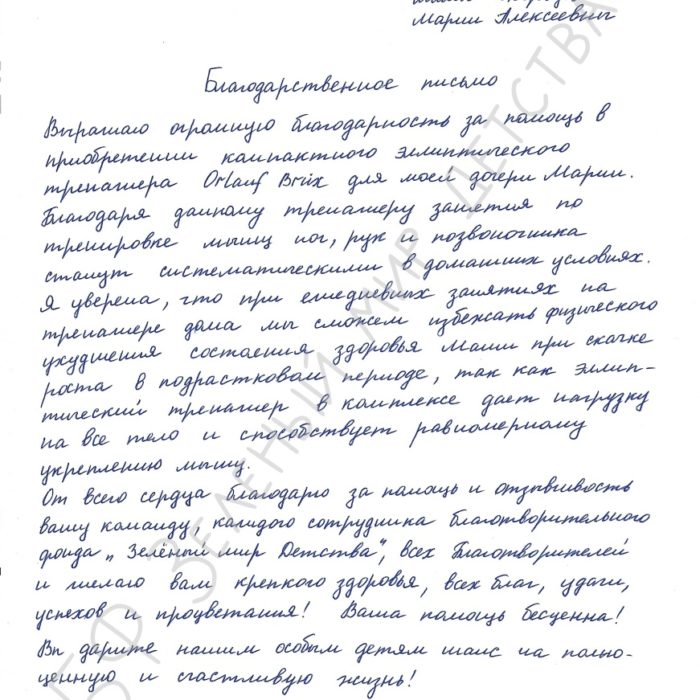 Марии Алексеевны
Благодарственное письмо
Выражаю огромную благодарность за помощь в
приобретении компактного эллиптического
тренажера Orlauf Brix для моей дочери Марии.
Благодаря данному тренажеру занятия по
тренировке мышц ног, рук и позвоночника
станут систематическими в домашних условиях.
Я уверена, что при ежедневных занятиях на
тренажере дома мы сможем избежать физического
ухудшения состояния здоровья Маши при скачке
роста в подрастковом периоде, так как эллип-
тический тренажер в комплексе дает нагрузку
на все тело и способствует равномерному
укреплению мышц.
От всего сердца благодарю за помощь и отзывчивость
вашу команду, каждого сотрудника благотворительного
фонда „Зелёный мир Детства", всех Благотворителей
и желаю вам крепкого здоровья, всех благ, удачи,
успехов и процветания! Ваша помощь бесценна!
Вы дарите нашим особым детям шанс на полно-
ценную и счастливую жизнь!
БФ ЗЕЛЕНЫЙ МИР ДЕТСТВА